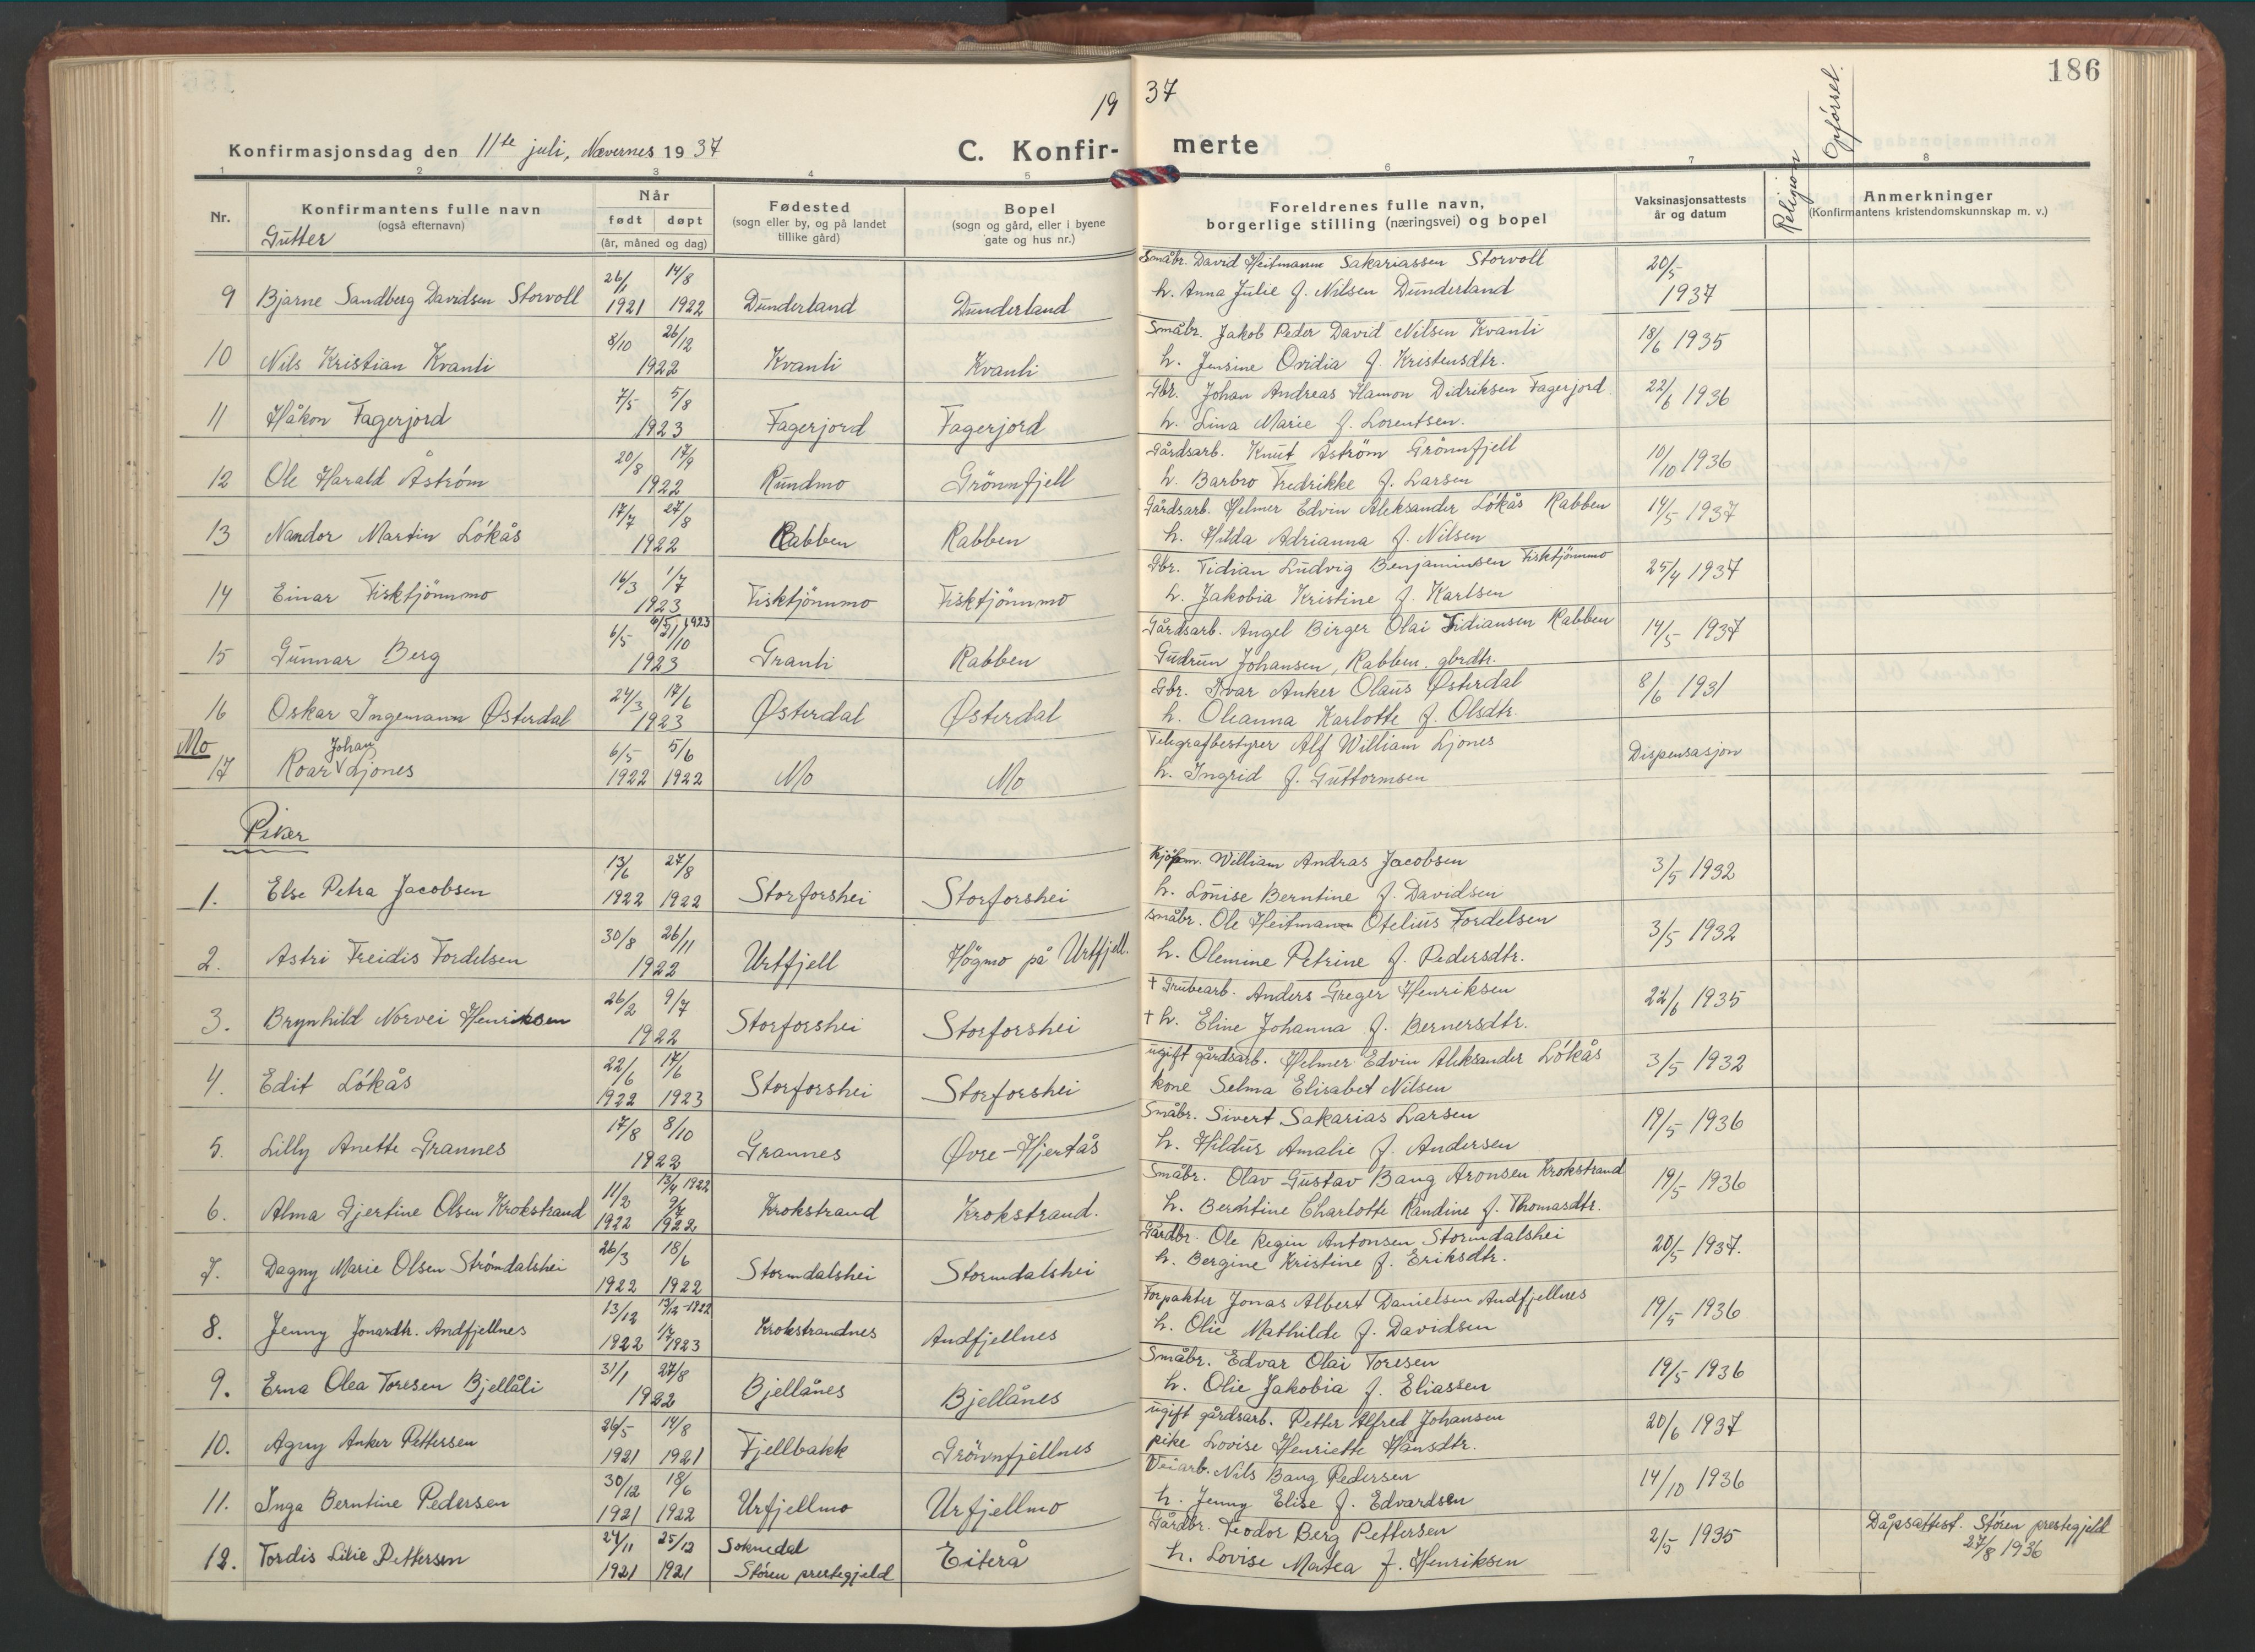 186
19 37
Konfirmasjonsdag den 11te juli, Nævernes 1937
C. Konfir- merte
Religion Opførsel.
1 2 3 4 5 6 7 8
Nr. Konfirmantens fulle navn (også efternavn) Når født døpt (år, måned og dag) Fødested (sogn eller by, og på landet tillike gård) Bopel (sogn og gård, eller i byene gate og hus nr.) Foreldrenes fulle navn, borgerlige stilling (næringsvei) og bopel Vaksinasjonsattests år og datum Anmerkninger (Konfirmantens kristendomskunnskap m. v.)
Gutter
9 Bjarne Sandberg Davidsen Storvoll 26/1 1921 14/8 1922 Dunderland Dunderland Småbr. David Heitmann Sakariassen Storvoll 20/5 1937
h. Anna Julie f. Nilsen Dunderland
10 Nils Kristian Kvanli 8/10 26/12 1922 Kvanli Kvanli Småbr. Jakob Peder David Nilsen Kvanli 18/6 1935
h. Jensine Ovidia f. Kristensdtr.
11 Håkon Fagerjord 7/5 5/8 1923 Fagerjord Fagerjord Gbr. Johan Andreas Hamon Didriksen Fagerjord 22/6 1936
h. Lina Marie f. Lorentsen.
12 Ole Harald Åström 20/8 17/9 1922 Rundmo Grönnfjell Gårdsarb. Knut Åström Grönnfjell 10/10 1936
h. Barbro Fredrikke f. Larsen
13 Nandor Martin Lókås 17/7 27/8 1922 Rabben Rabben Gårdsarb. Helmer Edvin Aleksander Lókås Rabben 14/5 1937
h. Hilda Adrianna f. Nilsen
14 Einar Fisktjönnmo 16/3 1/7 1923 Fisktjönnmo Fisktjönnmo Gbr. Tidian Ludvig Benjaminsen Fisktjönnmo 25/4 1937
h. Jakobia Kristine f. Karlsen
15 Gunnar Berg 6/5 6/5 1923 21/10 1923 Granli Rabben Gårdsarb. Angel Birger Olai Tidiansen Rabben 14/5 1937
Gudrun Johansen, Rabben. gbrdtr.
16 Oskar Ingemann Østerdal 24/3 17/6 1923 Østerdal Østerdal Gbr. Ivar Anker Olaus Østerdal 8/6 1931
h. Oleanna Karlotte f. Olsdtr.
Mo
17 Roar Johan Ljones 6/5 1922 5/6 1922 Mo Mo Telegrafbestyrer Alf William Ljones Dispensasjon
h. Ingrid f. Guttormsen
Piker
1. Else Petra Jacobsen 13/6 1922 27/8 1922 Storforshei Storforshei Kjöpm. William Andras Jacobsen 3/5 1932
h. Louise Berntine f. Davidsen
2. Astri Freidis Fordelsen 30/8 26/11 1922 Urtfjell Högmo på Urtfjell. Småbr. Ole Heitmann Otelius Fordelsen 3/5 1932
h. Olemine Petrine f. Pedersdtr.
3. Brynhild Norvei Henriksen 26/2 9/7 1922 Storforshei Storforshei † Grubearb. Anders Greger Henriksen 22/6 1935
† h. Eline Johanna f. Bernersdtr.
4. Edit Lókås 22/6 1922 17/6 1923 Storforshei Storforshei ugift gårdsarb. Helmer Edvin Aleksander Lókås 3/5 1932
kone Selma Elisabet Nilsen
5. Lilly Anette Grannes 17/8 8/10 1922 Grannes Øvre-Hjertås Småbr. Sivert Sakarias Larsen 19/5 1936
h. Hildus Amalie f. Andersen
6. Alma Gjertine Olsen Krokstrand 11/2 1922 13/4 1922 9/7 1922 Krokstrand Krokstrand. Småbr. Olav Gustav Bang Aronsen Krokstrand 19/5 1936
h. Berntine Charlotte Randine f. Thomasdtr.
7. Dagny Marie Olsen Strómdalshei 26/3 1922 18/6 1922 Stormdalshei Stormdalshei Gårdbr. Ole Regin Antonsen Stormdalshei 20/5 1937.
h. Bergine Kristine f. Eriksdtr.
8. Jenny Jonasdtr. Andfjellnes 13/12 1922 13/12-1922 1/7 1923 Krokstrandnes Andfjellnes Forpakter Jonas Albert Danielsen Andfjellnes 19/5 1936
h. Olie Mathilde f. Davidsen
9. Erna Olea Toresen Bjellåli 31/1 27/8 1922 Bjellånes Bjellånes Småbr. Edvar Olai Toresen 19/5 1936
h. Olie Jakobia f. Eliassen
10. Agny Anker Pettersen 26/5 1921 14/8 1921 Fjellbakk Grönnfjellnes ugift gårdsarb. Petter Alfred Johansen 20/6 1937
pike Lovise Henriette Hansdtr.
11. Inga Berntine Pedersen 30/12 1921 18/6 1922 Urfjellmo Urfjellmo Veiarb. Nils Bang Pedersen 14/10 1936
h. Jenny Elise f. Edvardsen
12. Tordis Lilie Pettersen 24/11 1921 25/12 1921 Soknedal Stören prestegjeld Eiterå Gårdbr. Teodor Berg Pettersen 2/5 1935 Dåpsattest. Stören prestegjeld 27/8 1936
h. Lovise Matea f. Henriksen